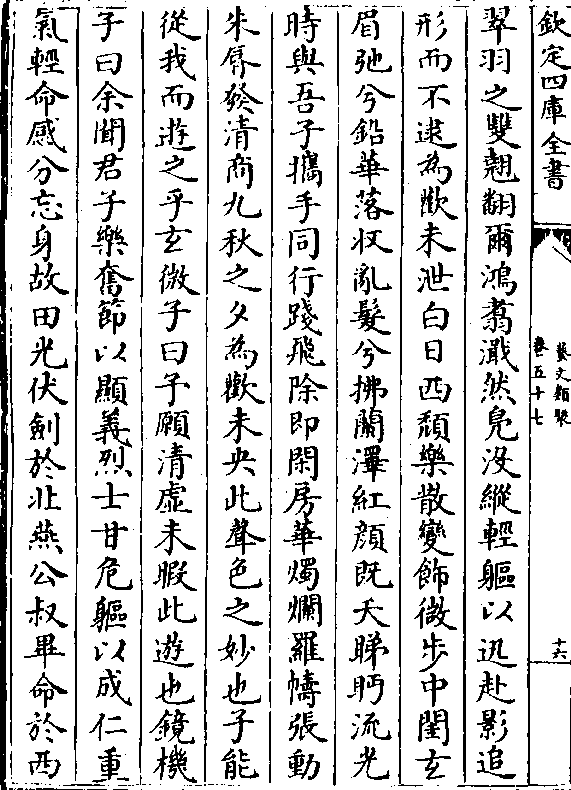 欽定四庫全書
藝文類聚
卷五十七
十六
翠羽之雙翹翻爾鴻翥濈然鳧没縱輕軀以迅赴影追
形而不逮為歡未泄白日西頹樂散變飾微步中閨玄
眉弛兮鉛華落收亂髮兮拂蘭澤紅顔既夭睇眄流光
時與吾子攜手同行踐飛除即閑房華燭爛羅幬張動
朱脣發清商九秋之夕為歡未央此聲色之妙也子能
從我而遊之乎玄微子曰予願清虚未暇此遊也鏡機
子曰余聞君子樂奮節以顯義烈士甘危軀以成仁重
氣輕命感分忘身故田光伏劍於北燕公叔畢命於西